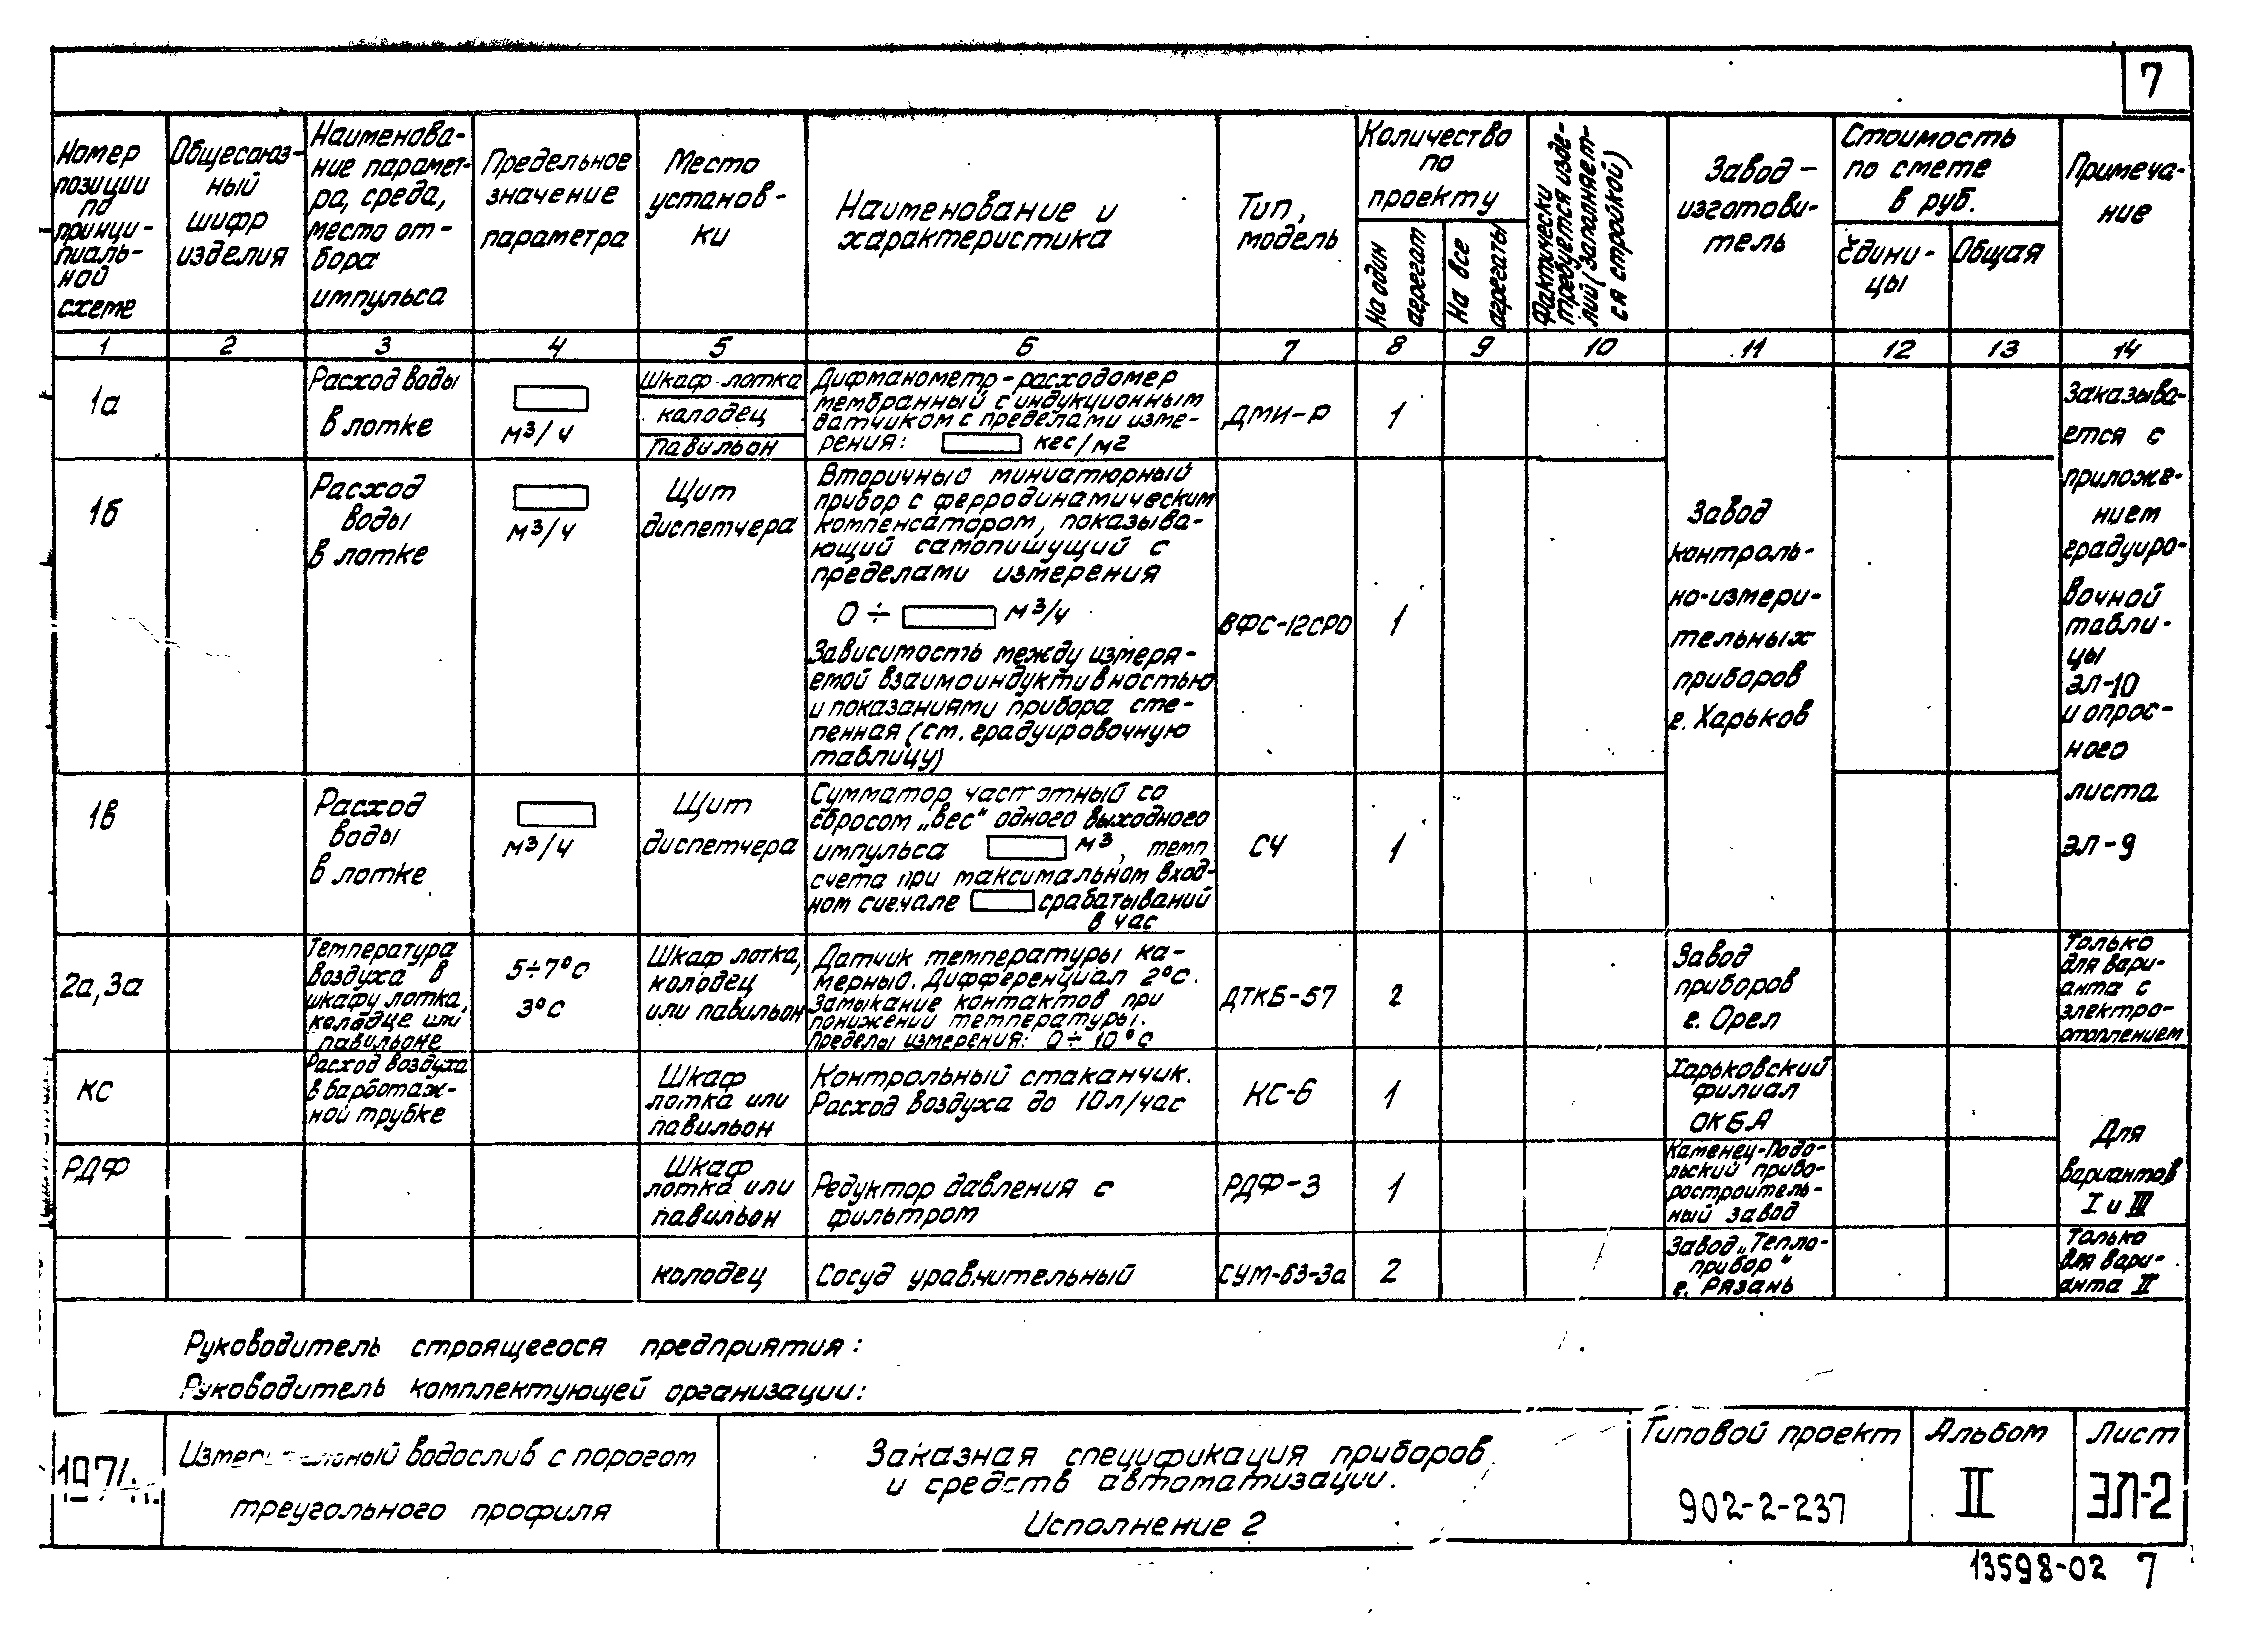 7
Номер
позиции
по
принци-
пиаль-
ной
схеме
Общесоюз-
ный
шифр
изделия
Наименова-
ние парамет-
ра, среда,
место от-
бора
импульса
Предельное
значение
параметра
Место
установ-
ки
Наименование и
характеристика
Тип,
модель
Количество
по
проекту
На один
агрегат
На все
агрегаты
Фактически
требуется изде-
лий (заполняет-
ся стройкой)
Завод-
изготови-
тель
Стоимость
по смете
в руб.
Едини-
цы
Общая
Примеча-
ние
1 2 3 4 5 6 7 8 9 10 11 12 13 14
1а
Расход воды
в лотке
м³/ч
Шкаф лотка
колодец
павильон
Дифманометр-расходомер
мембранный с индукционным
датчиком с пределами изме-
рения: кгс/м2
ДМИ-Р
1
1б
Расход
воды
в лотке
м³/ч
Щит
диспетчера
Вторичный миниатюрный
прибор с ферродинамическим
компенсатором, показыва-
ющий самопишущий с
пределами измерения
0 ÷ м³/ч
Зависимость между измеря-
емой взаимоиндуктивностью
и показаниями прибора сте-
пенная (см. градуировочную
таблицу)
ВФС-12СРО
1
Завод
контроль-
но-измери-
тельных
приборов
г. Харьков
Заказыва-
ется с
приложе-
нием
градуиро-
вочной
табли-
цы
ЭЛ-10
и опрос-
ного
листа
ЭЛ-9
1в
Расход
воды
в лотке
м³/ч
Щит
диспетчера
Сумматор частотный со
сбросом „вес“ одного выходного
импульса м³, темп
счета при максимальном вход-
ном сигнале срабатываний
в час
СЧ
1
2а, 3а
Температура
воздуха в
шкафу лотка,
колодце или
павильоне
5÷7°С
3°С
Шкаф лотка,
колодец
или павильон
Датчик температуры ка-
мерный. Дифференциал 2°С.
Замыкание контактов при
понижении температуры.
Пределы измерения: 0÷10°С
ДТКБ-57
2
Завод
приборов
г. Орел
Только
для вари-
анта с
электро-
отоплением
КС
Расход воздуха
в барботаж-
ной трубке
Шкаф
лотка или
павильон
Контрольный стаканчик.
Расход воздуха до 10л/час
КС-Б
1
Харьковский
филиал
ОКБА
РДФ
Шкаф
лотка или
павильон
Редуктор давления с
фильтром
РДФ-3
1
Каменец-Подо-
льский прибо-
ростроитель-
ный завод
Для
вариантов
I и III
колодец
Сосуд уравнительный
СУМ-63-3а
2
Завод „Тепло-
прибор“
г. Рязань
Только
для вари-
анта II
Руководитель строящегося предприятия:
Руководитель комплектующей организации:
Измерительный водослив с порогом
треугольного профиля
Заказная спецификация приборов
и средств автоматизации.
Исполнение 2
Типовой проект
902-2-237
Альбом
II
Лист
ЭЛ-2
13598-02 7